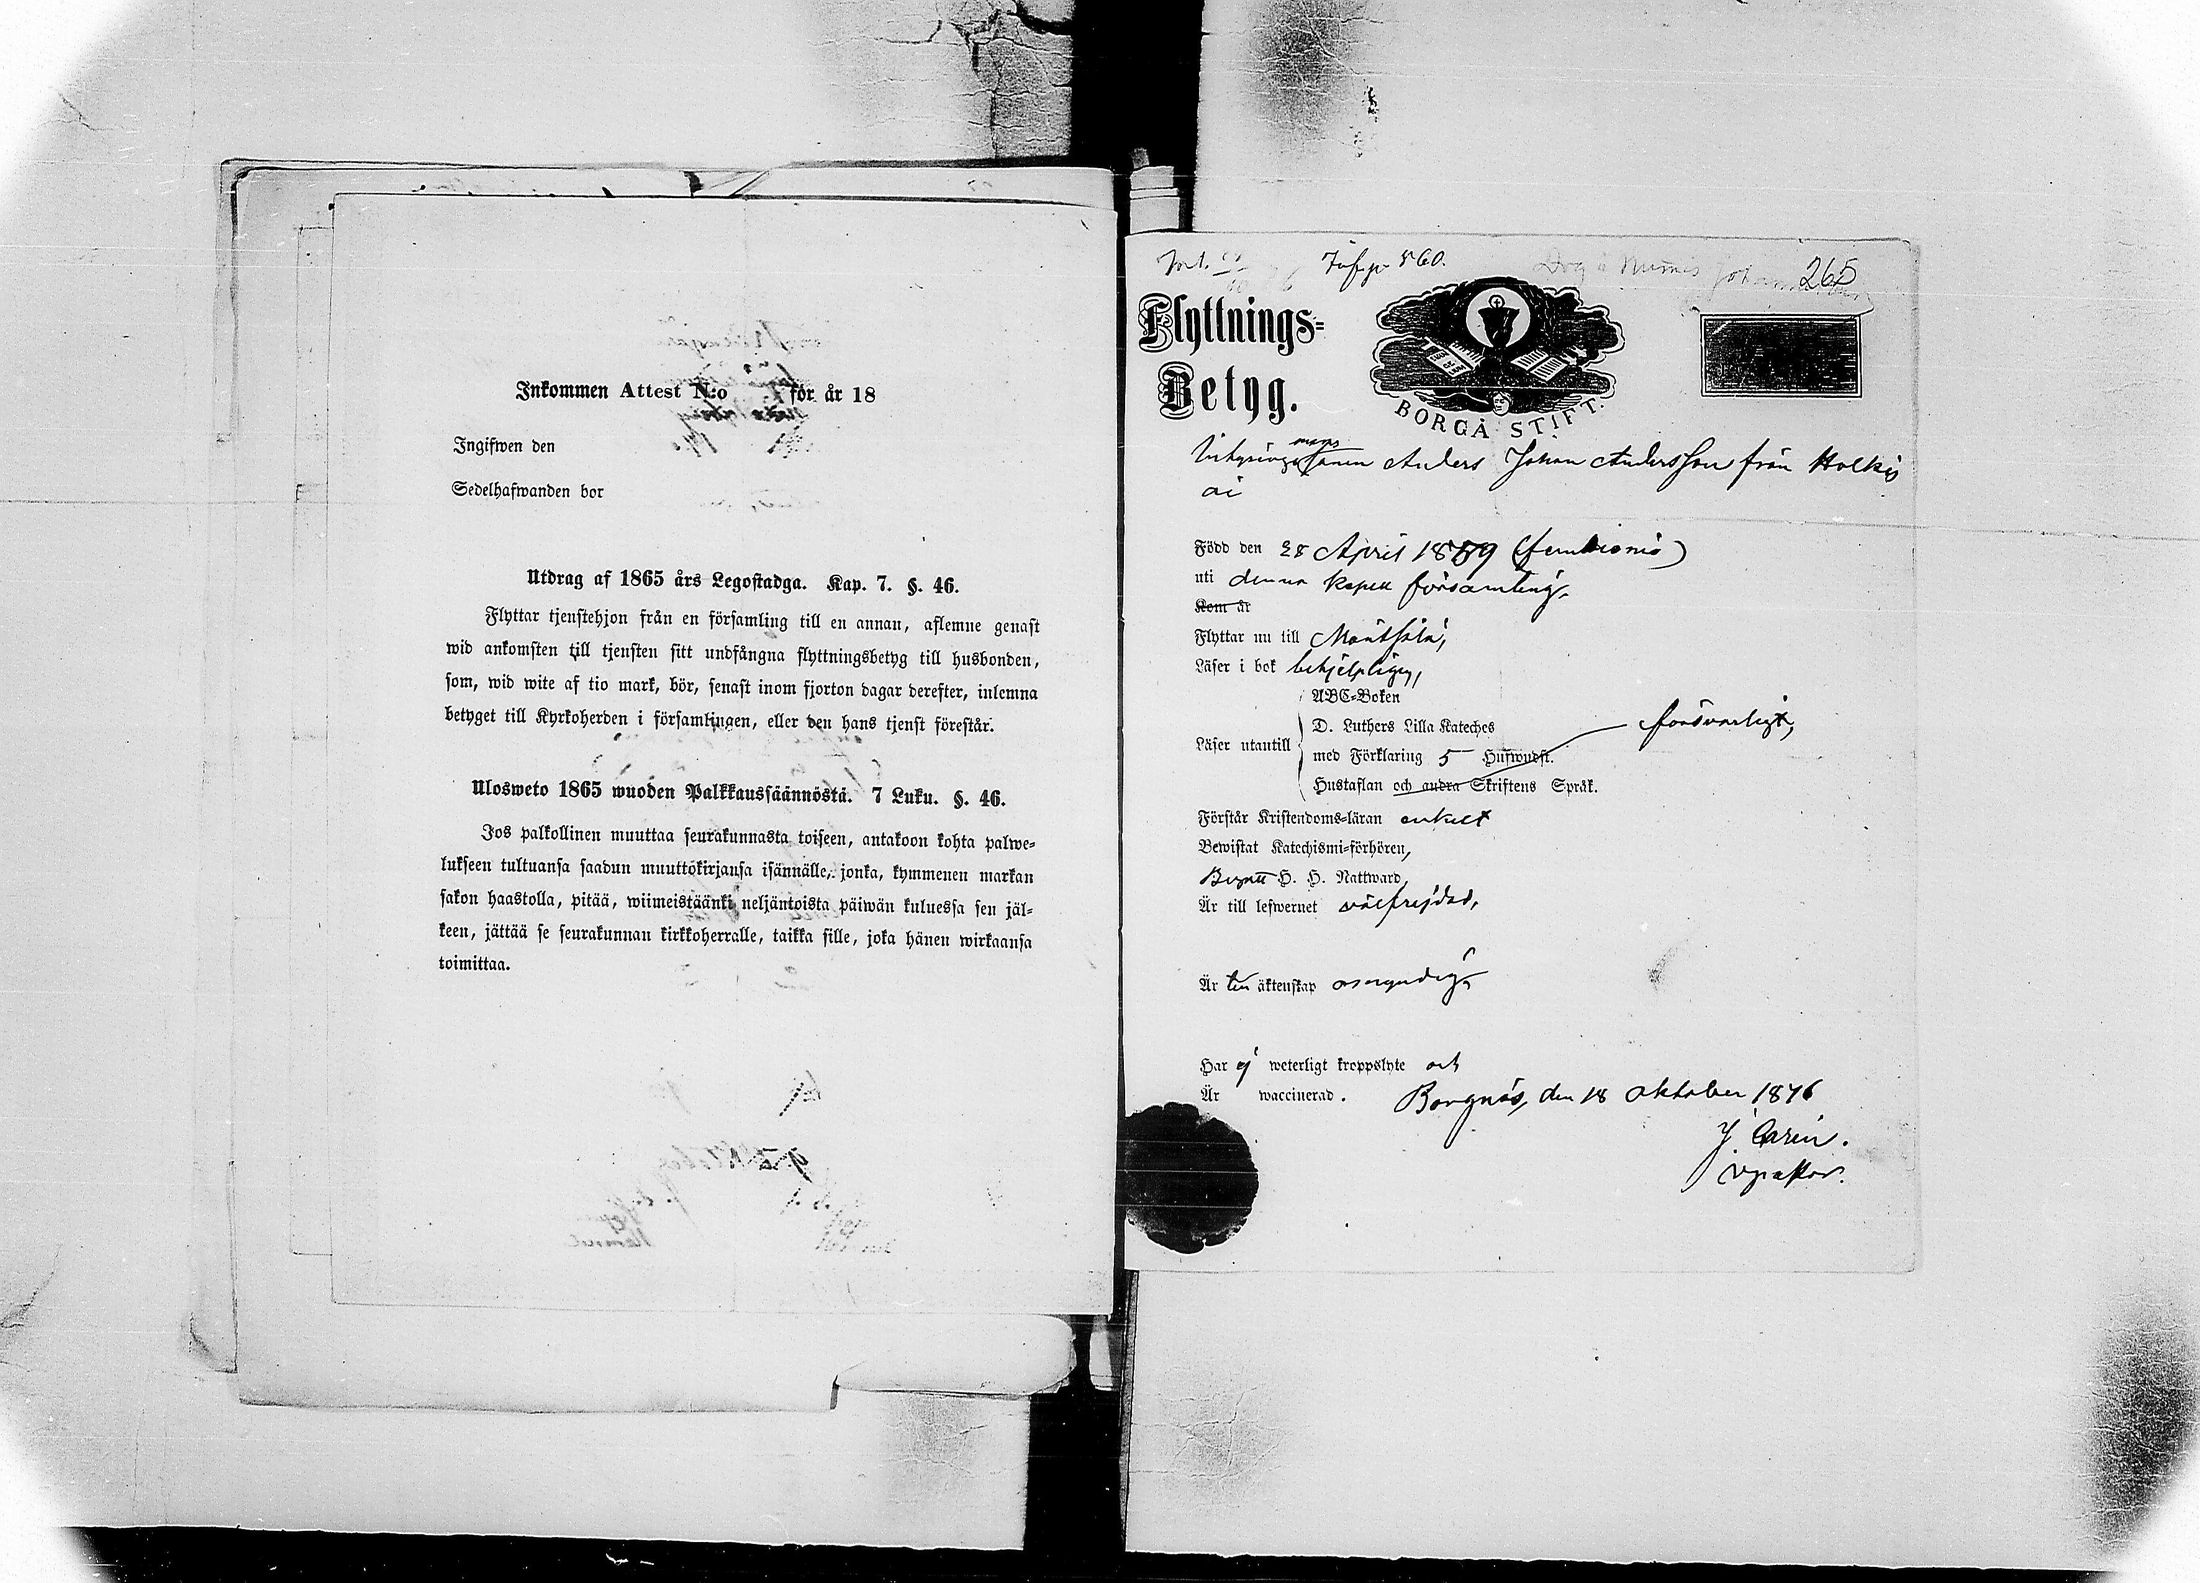 Inkommen Attest N:o för år 18
Ingifwen den
Sedelhafwanden bor
Utdrag af 1865 års Legostadga. Kap. 7. §. 46.
Flyttar tjenstehjon från en församling till en annan, aflemne genast
wid ankomsten till tjensten sitt undfångna flyttningsbetyg till husbonden,
som, wid wite af tio mark, bör, senast inom fjorton dagar derefter, inlemna
betyget till Kyrkoherden i församlingen, eller den hans tjenst förestår.
Ulosweto 1865 wuoden Palkkaussäännöstä. 7 Luku. §. 46.
Jos palkollinen muuttaa seurakunnasta toiseen, antakoon kohta palwe-
lukseen tultuansa saadun muuttokirjansa isännälle, jonka, kymmenen markan
sakon haastolla, pitää, wiimeistäänki neljäntoista päiwän kuluessa sen jäl-
keen, jättää se seurakunnan kirkkoherralle, taikka sille, joka hänen wirkaansa
toimittaa.
560. 265
Flyttnings-
Betyg.
BORGÅ STIFT.
Anders Johan Andersson från
Född den 28 April 1859
uti denna kapell församling.
Kom år
Flyttar nu till Mäntsälä,
Läser i bok behjelpligen,
ABC-Boken
D. Luthers Lilla Kateches
Läser utantill
med Förklaring 5 Hufwudst.
försvarligt,
Hustaflan och andra Skriftens Språk.
Förstår Kristendoms-läran enkelt
Bewistat Katechismi-förhören,
Begått H. H. Nattward,
Är till lefwernet välfrejdad,
Är till äktenskap omyndig,
Har ej weterligt kroppslyte och
Är waccinerad. Borgnäs, den 18 oktober 1876